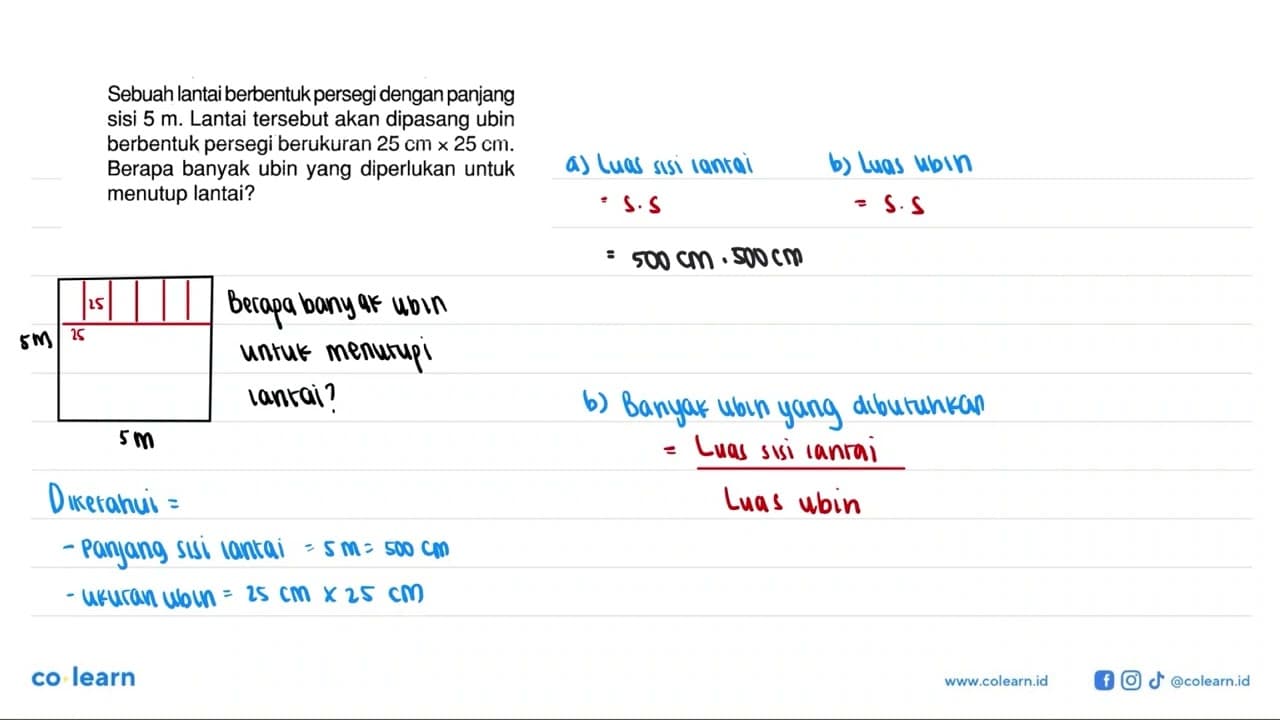 Sebuah lantai berbentuk persegi dengan panjang
sisi 5 m. Lantai tersebut akan dipasang ubin
berbentuk persegi berukuran 25 cm × 25 cm.
Berapa banyak ubin yang diperlukan untuk
menutup lantai?
25
25
5 m
5 m
Berapa banyak ubin
untuk menutupi
lantai?
Diketahui =
- Panjang sisi lantai = 5 m = 500 cm
- ukuran ubin = 25 cm x 25 cm
a) Luas sisi lantai
= s . s
= 500 cm . 500 cm
b) Luas ubin
= s . s
b) Banyak ubin yang dibutuhkan
= Luas sisi lantai
Luas ubin
co learn
www.colearn.id
@colearn.id